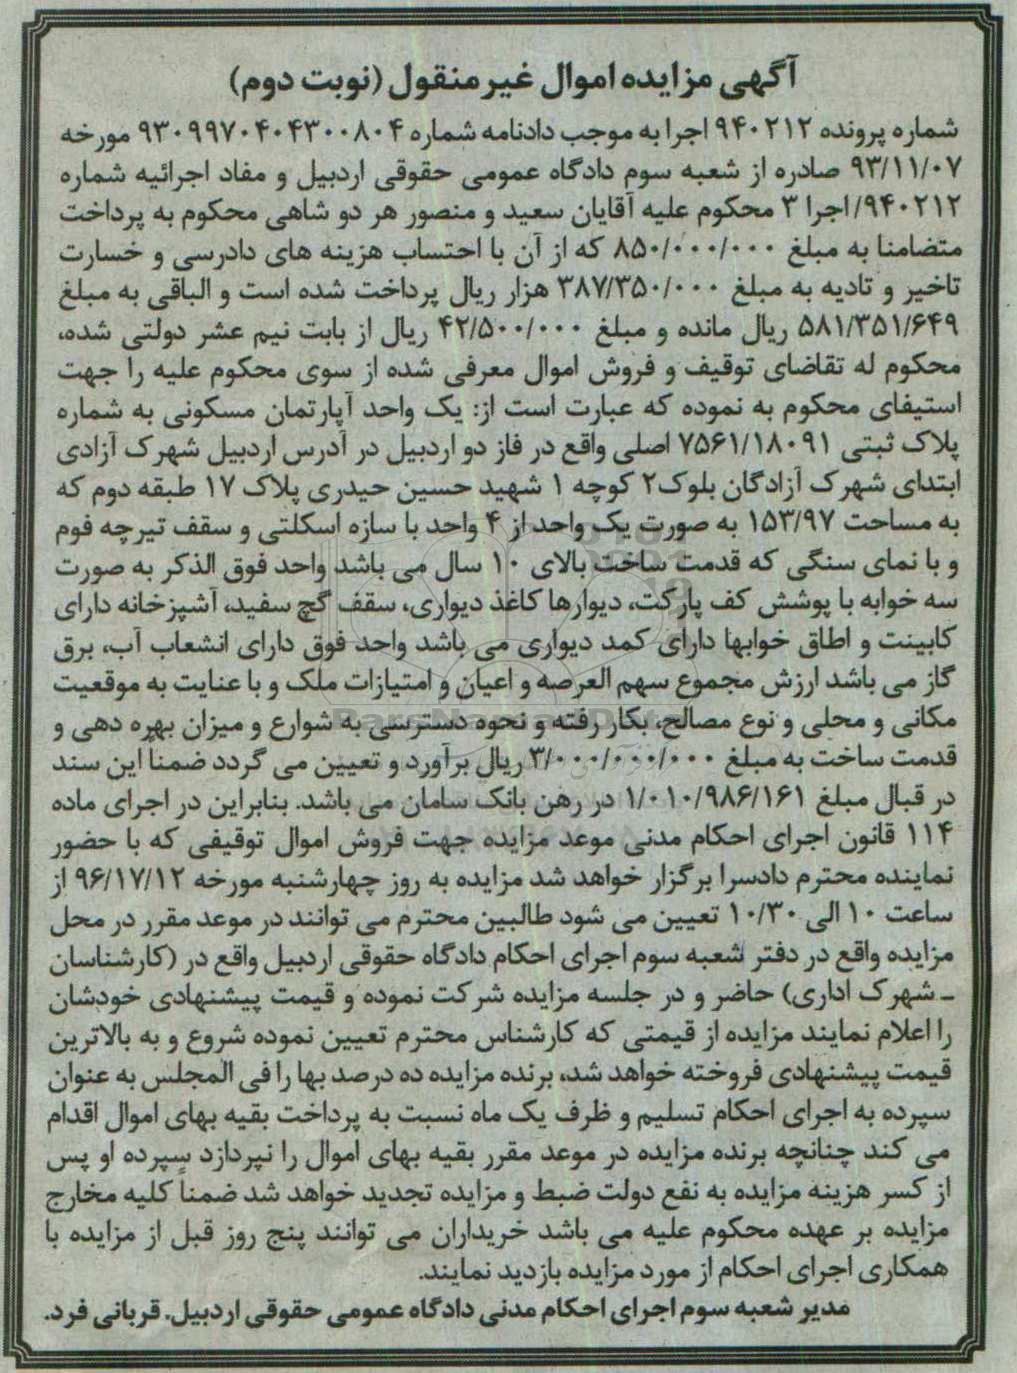 آگهی مزایده اموال غیرمنقول (نوبت دوم)
شماره پرونده ۹۴۰۲۱۲ اجرا به موجب دادنامه شماره ۹۳۰۹۹۷۰۴۰۴۳۰۰۸۰۴ مورخه
۹۳/۱۱/۰۷ صادره از شعبه سوم دادگاه عمومی حقوقی اردبیل و مفاد اجرائیه شماره
۹۴۰۲۱۲/اجرا ۳ محکوم علیه آقایان سعید و منصور هر دو شاهی محکوم به پرداخت
متضامنا به مبلغ ۸۵۰/۰۰۰/۰۰۰ که از آن با احتساب هزینه های دادرسی و خسارت
تاخیر و تادیه به مبلغ ۳۸۷/۳۵۰/۰۰۰ هزار ریال پرداخت شده است و الباقی به مبلغ
۵۸۱/۳۵۱/۶۴۹ ریال مانده و مبلغ ۴۲/۵۰۰/۰۰۰ ریال از بابت نیم عشر دولتی شده،
محکوم له تقاضای توقیف و فروش اموال معرفی شده از سوی محکوم علیه را جهت
استیفای محکوم به نموده که عبارت است از: یک واحد آپارتمان مسکونی به شماره
پلاک ثبتی ۷۵۶۱/۱۸۰۹۱ اصلی واقع در فاز دو اردبیل در آدرس اردبیل شهرک آزادی
ابتدای شهرک آزادگان بلوک۲ کوچه ۱ شهید حسین حیدری پلاک ۱۷ طبقه دوم که
به مساحت ۱۵۳/۹۷ به صورت یک واحد از ۴ واحد با سازه اسکلتی و سقف تیرچه فوم
و با نمای سنگی که قدمت ساخت بالای ۱۰ سال می باشد واحد فوق الذکر به صورت
سه خوابه با پوشش کف پارکت، دیوارها کاغذ دیواری، سقف گچ سفید، آشپزخانه دارای
کابینت و اطاق خوابها دارای کمد دیواری می باشد واحد فوق دارای انشعاب آب، برق
گاز می باشد ارزش مجموع سهم العرصه و اعیان و امتیازات ملک و با عنایت به موقعیت
مکانی و محلی و نوع مصالح، بکار رفته و نحوه دسترسی به شوارع و میزان بهره دهی و
قدمت ساخت به مبلغ ۳/۰۰۰/۰۰۰/۰۰۰ ریال برآورد و تعیین می گردد ضمنا این سند
در قبال مبلغ ۱/۰۱۰/۹۸۶/۱۶۱ در رهن بانک سامان می باشد. بنابراین در اجرای ماده
۱۱۴ قانون اجرای احکام مدنی موعد مزایده جهت فروش اموال توقیفی که با حضور
نماینده محترم دادسرا برگزار خواهد شد مزایده به روز چهارشنبه مورخه ۹۶/۱۷/۱۲ از
ساعت ۱۰ الی ۱۰/۳۰ تعیین می شود طالبین محترم می توانند در موعد مقرر در محل
مزایده واقع در دفتر شعبه سوم اجرای احکام دادگاه حقوقی اردبیل واقع در (کارشناسان
ـ شهرک اداری) حاضر و در جلسه مزایده شرکت نموده و قیمت پیشنهادی خودشان
را اعلام نمایند مزایده از قیمتی که کارشناس محترم تعیین نموده شروع و به بالاترین
قیمت پیشنهادی فروخته خواهد شد، برنده مزایده ده درصد بها را فی المجلس به عنوان
سپرده به اجرای احکام تسلیم و ظرف یک ماه نسبت به پرداخت بقیه بهای اموال اقدام
می کند چنانچه برنده مزایده در موعد مقرر بقیه بهای اموال را نپردازد سپرده او پس
از کسر هزینه مزایده به نفع دولت ضبط و مزایده تجدید خواهد شد ضمناً کلیه مخارج
مزایده بر عهده محکوم علیه می باشد خریداران می توانند پنج روز قبل از مزایده با
همکاری اجرای احکام از مورد مزایده بازدید نمایند.
مدیر شعبه سوم اجرای احکام مدنی دادگاه عمومی حقوقی اردبیل. قربانی فرد.